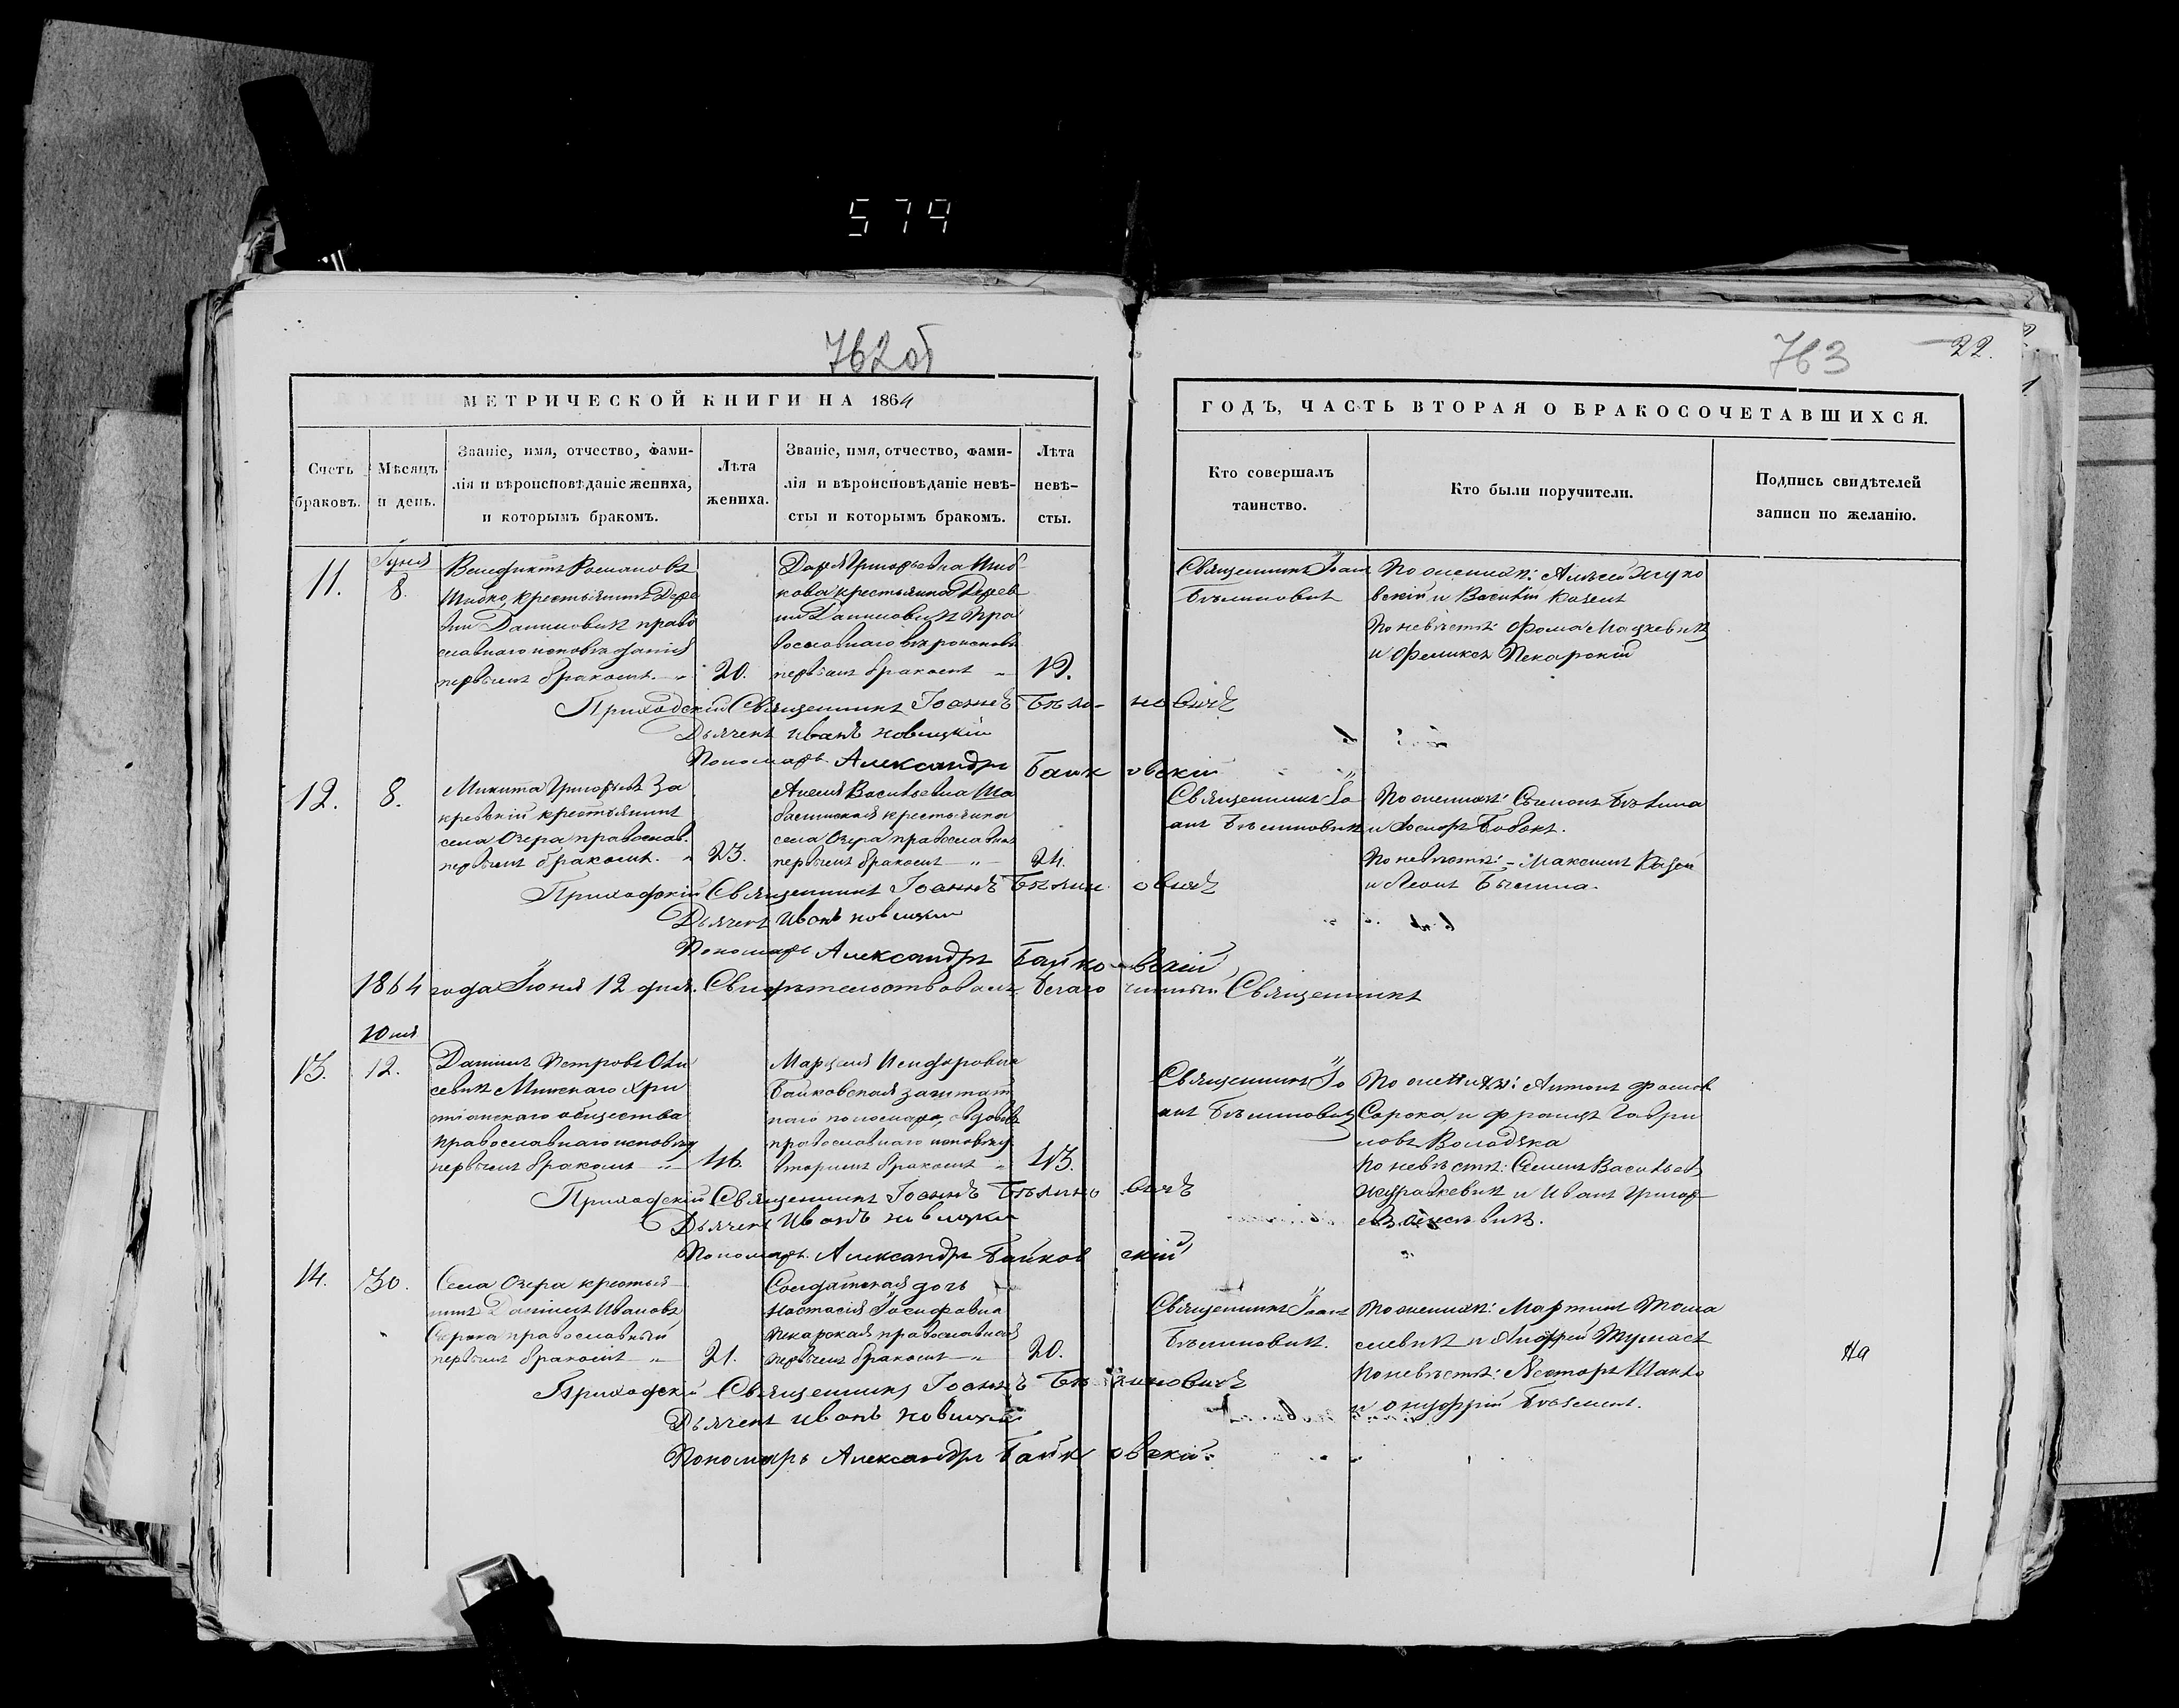 579
762об
763
22.
МЕТРИЧЕСКОЙ КНИГИ НА 1864
ГОДЪ, ЧАСТЬ ВТОРАЯ О БРАКОСОЧЕТАВШИХСЯ.
Счетъ
браковъ.
Мѣсяцъ
и день.
Званіе, имя, отчество, фами-
лія и вѣроисповѣданіе жениха,
и которымъ бракомъ.
Лѣта
жениха.
Званіе, имя, отчество, фами-
лія и вѣроисповѣданіе невѣ-
сты и которымъ бракомъ.
Лѣта
невѣ-
сты.
Кто совершалъ
таинство.
Кто были поручители.
Подпись свидѣтелей
записи по желанію.
11.
Іуня
8.
Венедиктъ Романовъ
Шибко, крестьянинъ Дере
вни Даниловичъ право
славнаго исповѣданія
первымъ бракомъ.
20.
Дарія Григорьевна Шиб
кова крестьянка Дерев
ни Даниловичъ пра
вославнаго вѣроисповѣ
первымъ бракомъ
19.
Священникъ Іоан
Бѣлиновичъ
По женихѣ: Алексѣй Жуко
вскій и Василій Козелъ
По невѣстѣ: Фома Мацкевичъ
и Феликсъ Пекарскій
Приходскій Священникъ Іоаннъ Бѣли-новичъ
Дьячекъ Иванъ Новицкій
Пономарь Александръ Байковскій
12.
8.
Микита Григорьевъ За
кревскій крестьянинъ
села Озера православ.
первымъ бракомъ.
23.
Васильевна Ша
крестьянка
села Озера православна
первымъ бракомъ
24.
Священникъ Іо
анъ Бѣлиновичъ
По женихѣ: Сѣмонъ
и Бобокъ.
По невѣстѣ:- Максимъ
и Леонъ
Приходскій Священникъ Іоаннъ Бѣлиновичъ
Дьячекъ Иванъ Новицкій
Пономарь Александръ Байковскій
1864 года Іюня 12 дня. Свидѣтельствовалъ Благочинный Священникъ
Юля
13.
12.
Даніилъ Петровъ Оли
севичъ Минскаго хри
стіанскаго общества
православнаго исповѣд
первымъ бракомъ
46.
Байковская заштат
наго пономаря, вдова
православнаго исповѣд
вторымъ бракомъ
43.
Священникъ Іо
анъ Бѣлиновичъ
По женихѣ: Антонъ Фомов
Сорока, и Францъ Гаври
ловъ Володзка
По невѣстѣ: Семенъ Васильевъ
Журавкевичъ и Иванъ Григор
евъ
Приходскій Священникъ Іоаннъ Бѣлиновичъ
Дьячекъ Иванъ Новицкій
Пономарь Александръ Байковскій
14.
30.
Села Озера крестья
нинъ Даніилъ Ивановъ
Сорока православный
первымъ бракомъ
21.
Солдатская дочь
Настасія Іосифовна
Пекарская православная
первымъ бракомъ
20.
Священникъ Іоанъ
Бѣлиновичъ.
По женихѣ: Мартинъ Тома
шевичъ и Андрей
По невѣстѣ: Несторъ Шанко
и Онуфрій
Приходскій Священникъ Іоаннъ Бѣлиновичъ
Дьячекъ Иванъ Новицкій
Пономарь Александръ Байковскій